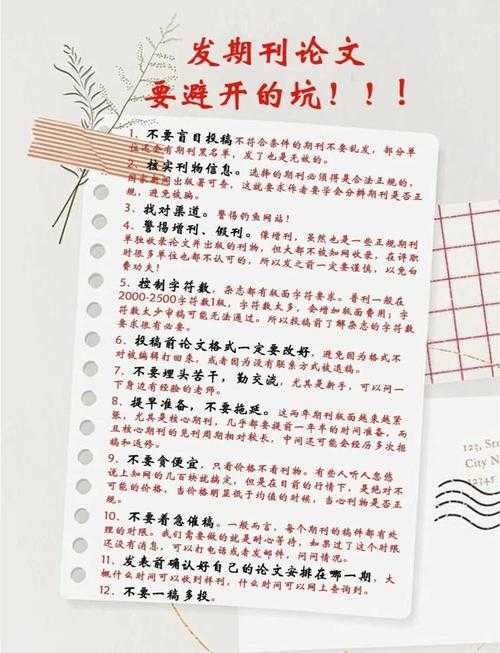 发期刊论文
要避开的坑！！！
1、不要盲目投稿不符合条件的期刊不要乱发，部分
单位还会有期刊黑名单，发了也是无效的。
2、核实刊物信息。选择的期刊必须得是合法正规的，
国家新闻出版署可查，这就要求作者要学会分辨期刊是否正
规，避免被骗。
3、找对渠道。警惕钓鱼网站！
4、警惕增刊、假刊。像增刊，虽然也是一些正规期刊
单独收录论文件出版的刊物，但大都不被知网收录，在评职
时很多单位也都不认可的，所以发之前一定要谨慎，以免白
费功夫！
5、控制字符数，杂志都有版面字符要求。普刊一般在
2000-2500字符数1版，字符数太多，会增加版面费用；字
符数太少审稿可能无法通过。所以投稿前了解杂志的字符数
要求很有必要。
6、投稿前论文格式一定要改好，避免因为格式不
对被编辑打回来，或者因为没有联系方式被退稿。
7、不要埋头苦干，勤交流，尤其是新手，可以问一
下身边有经验的老师。
8、提早准备，不要拖延。这两年期刊版面越来越紧
张，尤其是核心期刊，几乎都要提前一年半的时间准备，而
且核心期刊的见刊周期相对较长，中间还可能会经历多次拒
稿和返修。
9、不要贪便宜，只看价格不看刊物。有些人听人忽悠
说上知网的几百块就搞定，但是在目前的行情下，是绝对不
可能的价格，当价格明显低于均值的时候，当心刊物是否正
规。
10、不要着急催稿。一般而言，每个期刊的稿件都有处
理的时限。我们需要做的就是耐心等待，如果过了这个时限
还没有消息，可以打电话或者发邮件，问问情况。
11、发表前确认好自己的论文安排在哪一期，大
概什么时间可以收到样刊，什么时间可以网上查询到。
12、不要一稿多投。
City N
12345